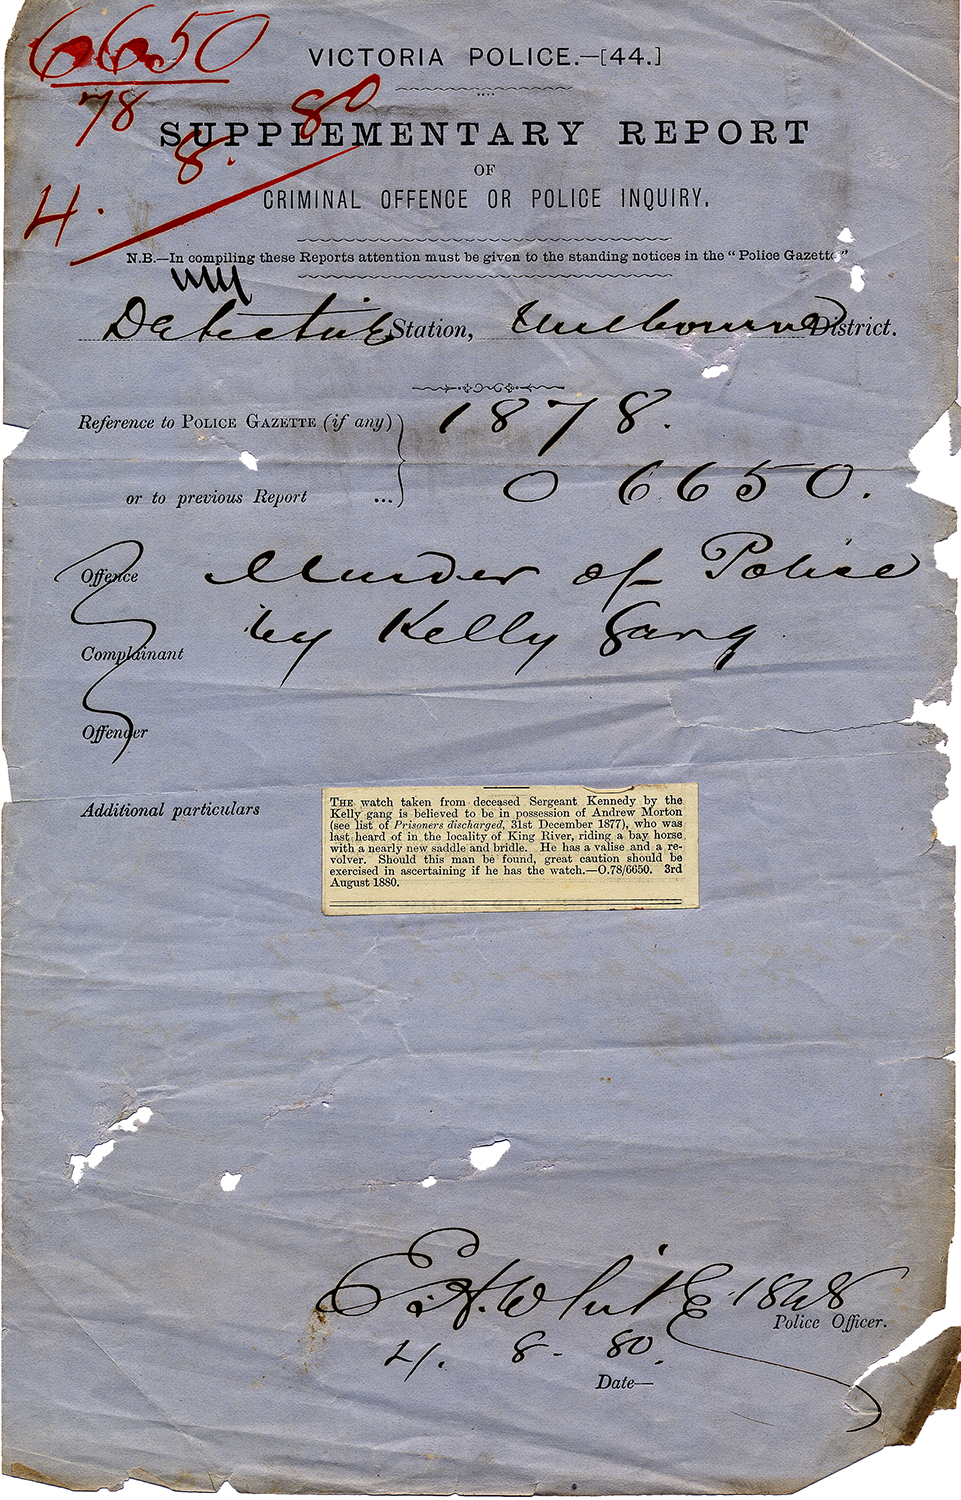 6650
78
4. 8. 80
VICTORIA POLICE.—[44.]
SUPPLEMENTARY REPORT
OF
CRIMINAL OFFENCE OR POLICE INQUIRY.
N.B.—In compiling these Reports attention must be given to the standing notices in the "Police Gazette"
Detective Station, Melbourne District.
Reference to POLICE GAZETTE (if any) 1878.
or to previous Report ... O 6650.
Offence Murder of Police
by Kelly Gang
Complainant
Offender
Additional particulars
THE watch taken from deceased Sergeant Kennedy by the
Kelly gang is believed to be in possession of Andrew Morton
(see list of Prisoners discharged, 31st December 1877), who was
last heard of in the locality of King River, riding a bay horse
with a nearly new saddle and bridle. He has a valise and a re-
volver. Should this man be found, great caution should be
exercised in ascertaining if he has the watch.—O.78/6650. 3rd
August 1880.
E. H. White
Police Officer.
4. 8. 80.
Date—